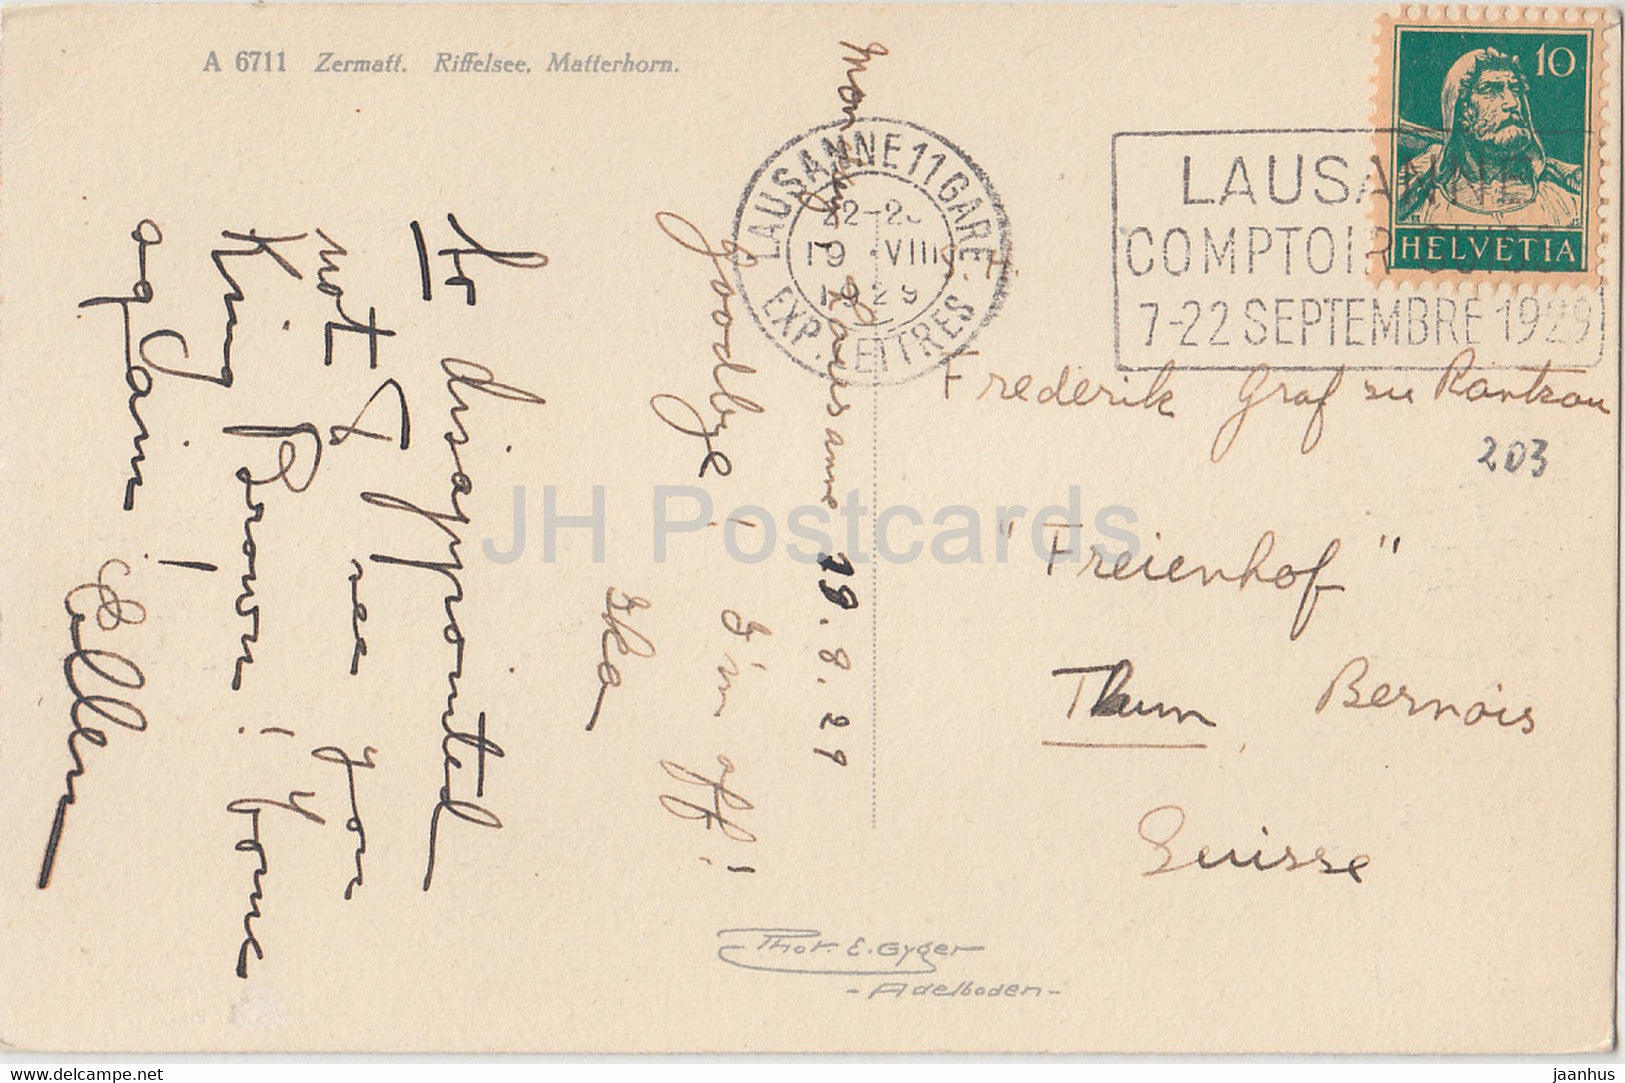 A 6711 Zermatt. Riffelsee, Matterhorn.
Lausanne 19.8.29
Goodbye, I'm off!
Ika
So disappointed
not to see you
King Brown! Come
again!
Ellen
LAUSANNE 11 GARE
EXP. LETTRES
19 VIII
1929
LAUSANNE
COMPTOIR SUISSE
7-22 SEPTEMBRE 1929
10
HELVETIA
Frederik Graf zu Rantzau
203
"Freienhof"
Thun, Bernois
Suisse
Phot. E. Gyger
- Adelboden -
JH Postcards
www.delcampe.net
jaanhus